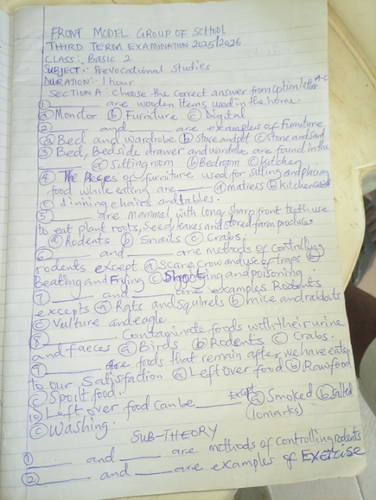 FRONT MODEL GROUP OF SCHOOL
THIRD TERM EXAMINATION 2025/2026
CLASS: Basic 2
SUBJECT: Prevocational Studies
DURATION: 1 hour
SECTION A: Choose the correct answer from option letter A-C
① ______ are wooden items used in the home.
ⓐ Monitor ⓑ Furniture ⓒ Digital
② ______ and ______ are examples of Furniture
ⓐ Bed and wardrobe ⓑ Stone and pot ⓒ Stone and sand
③ Bed, Bedside drawer and wardrobe are found in the
______ ⓐ Sitting room ⓑ Bedroom ⓒ kitchen
④ The Pieces of furniture used for sitting and placing
food while eating are ______ ⓐ matress ⓑ kitchen
ⓒ dinning chairs and tables.
⑤ ______ are mammal with long sharp front teeth use
to eat plant roots, Seed, leaves and stored farm produce
ⓐ Rodents ⓑ Snails ⓒ Crabs.
⑥ ______ and ______ are methods of controlling
rodents except ⓐ Scare Crow and use of traps ⓑ
Beating and Frying ⓒ Shooting and poisoning.
⑦ ______ and ______ are examples Rodents
excepts ⓐ Rats and Squirrels ⓑ mice and rabbits
ⓒ Vulture and eagle.
⑧ ______ Contaminate foods with their urine
and faeces ⓐ Birds ⓑ Rodents ⓒ Crabs.
⑨ ______ are foods that remain after we have eaten
to our Satisfaction ⓐ Left over food ⓑ Raw food
ⓒ Spoilt food.
⑩ Left over food can be ______ except ⓐ Smoked ⓑ
ⓒ Washing. (10marks)
SUB-THEORY
① ______ and ______ are methods of controlling rodents
② ______ and ______ are examples of Exercise